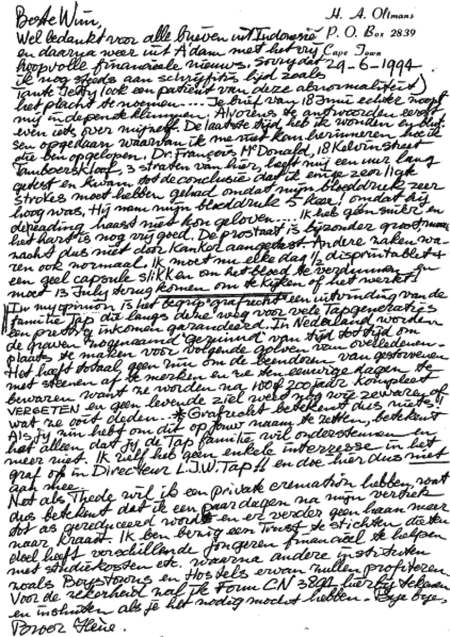 Beste Wim,
H. A. Oltmans
Wel bedankt voor alle brieven uit Indonesië
P. O. Box 2839
en daarna weer uit A'dam met het vrij
Cape Town
hoopvolle financieele nieuws. Sorry dat
29-6-1994
ik nog steeds aan schrijfitis lijd zoals
tante Jetty (ook een patient van deze abnormaliteit)
het placht te noemen.... Je brief van 18 Juni echter noopt
mij in de pen te klimmen. Alvorens te antwoorden eerst
even iets over mijzelf. De laatste tijd heb ik wonden en
sen opgedaan waarvan ik me niet kan herinneren hoe ik
die ben opgelopen. Dr. François McDonald, 18 Kelvin Street
Tamboerskloof, 3 straten van hier, heeft mij een uur lang
getest en kwam tot de conclusie dat ik enige zeer lichte
strokes moet hebben gehad omdat mijn bloeddruk zeer
hoog was. Hij nam mijn bloeddruk 5 keer! omdat hij
de reading haast niet kon geloven.... Ik heb geen suiker en
het hart is nog vrij goed. De prostaat is bijzonder groot, maar
zacht dus niet door kanker aangetast. Andere zaken wa-
ren ook normaal. Ik moet nu elke dag 1/2 disprintablet +
een geel capsule slikken om het bloed te verdunnen en
moet 13 July terug komen om te kijken of het werkt!
In my opinion is het begrip grafrecht een uitvinding van de
familie Tap die langs deze weg voor vele Tapgeneraties
een prettig inkomen garandeerd. In Nederland worden
de graven zogenaamd geruimd van tijd tot tijd om
plaats te maken voor volgende golven van overledenen.
Het heeft totaal geen zin om de beenderen van gestorvenen
met steenen af te merken en ze ten eeuwige dagen te
bewaren want ze worden na 100 of 200 jaar kompleet
VERGETEN en geen levende ziel weet nog wie ze waren of
wat ze ooit deden. * Grafrecht betekent dus niets!!
Als jij zin hebt om dit op jouw naam te zetten, betekent
het alleen dat jij de Tap familie wil ondersteunen en
meer niet. Ik zelf heb geen enkele interesse in het
graf of in Directeur L.J.W. Tap!! en doe hier dus niet
aan mee.
Net als Thede wil ik een private cremation hebben, wat
dus betekent dat ik een paar dagen na mijn vertrek
tot as gereduceerd wordt en er verder geen haan meer
naar kraait. Ik ben bezig een Trust te stichten die ten
doel heeft verschillende jongeren financieel te helpen
met studiekosten etc. waarna andere instituten
zoals Boystowns en Hostels ervan zullen profiteren.
Voor de zekerheid zal ik Form CN 3891 hierbij tekenen
en insluiten als je het nodig mocht hebben. Bye bye,
Broer Hène.